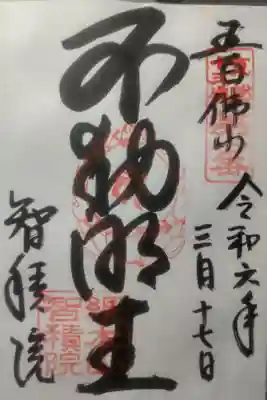 五百佛山
令和六年
三月十七日
不動明王
智積院
智積院